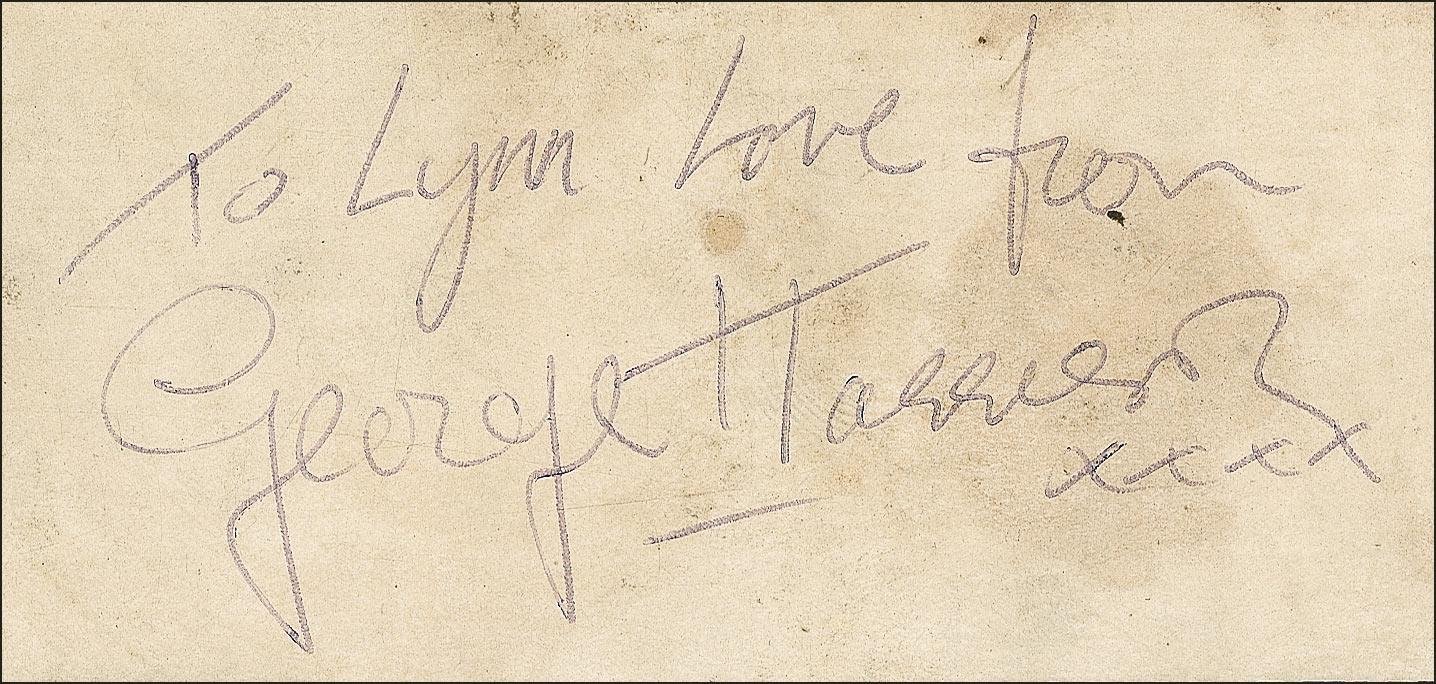 To Lynn Love from
George Harrison
xxxx